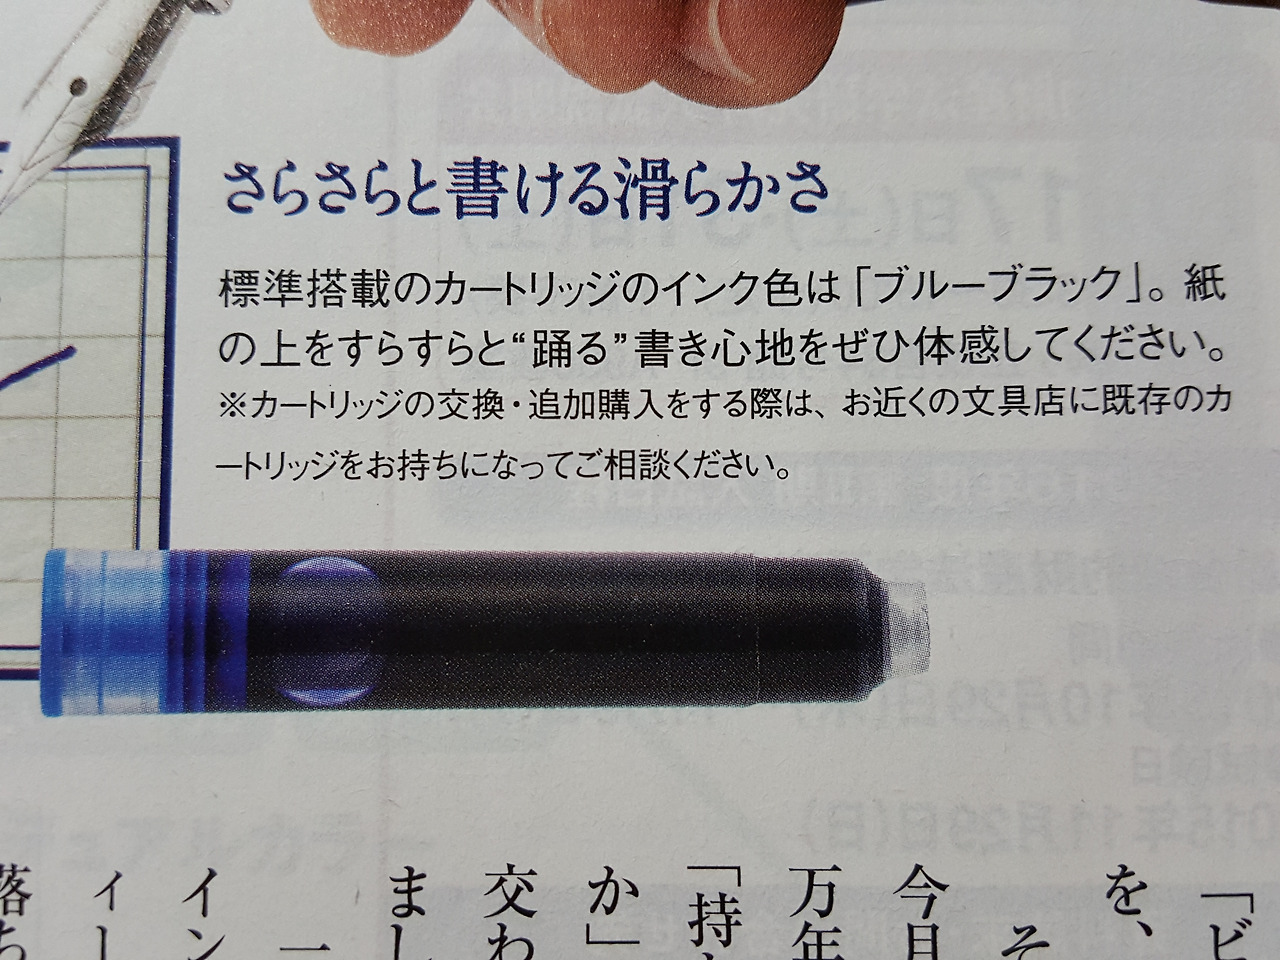 さらさらと書ける滑らかさ
標準搭載のカートリッジのインク色は「ブルーブラック」。紙
の上をすらすらと“踊る”書き心地をぜひ体感してください。
※カートリッジの交換・追加購入をする際は、お近くの文具店に既存のカ
ートリッジをお持ちになってご相談ください。
「ビ
を、
そ
今月
万年
「持
か」
交わ
まし
一
イン
ィー
落ち